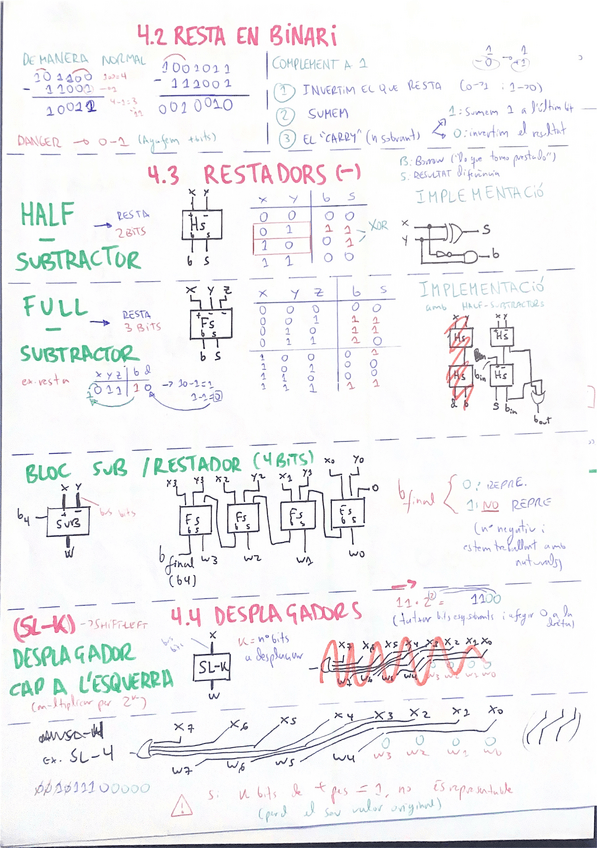 4.2 RESTA EN BINARI
DE MANERA NORMAL
101100
- 11001
10011
1001011
- 111001
0010010
DANGER → 0-1 (Agafem +bits)
COMPLEMENT A 1
1 INVERTIM EL QUE RESTA (0→1 : 1→0)
2 SUMEM
3 EL "CARRY" (n sobrant)
1: Sumem 1 a l'últim bit
0: invertim el resultat
4.3 RESTADORS (-)
B: Borrow ("lo que tomo prestado")
S: RESULTAT diferència
HALF
-
SUBTRACTOR
→ RESTA
2 BITS
X Y
Hs
b s
X Y b S
0 0 0 0
0 1 1 1
1 0 0 1
1 1 0 0
XOR
IMPLEMENTACIÓ
X
Y
S
b
FULL
-
SUBTRACTOR
→ RESTA
3 BITS
X Y Z
Fs
b s
b S
X Y Z b S
0 0 0 0 0
0 0 1 1 1
0 1 0 1 1
0 1 1 1 0
1 0 0 0 1
1 0 1 0 0
1 1 0 0 0
1 1 1 1 1
ex. resta
x y z b d
0 1 1 1 0
→ 10-1=1
1-1=0
IMPLEMENTACIÓ
amb HALF-SUBTRACTORS
X Y
Hs
Hs
bin
S bin
bout
BLOC SUB / RESTADOR (4 BITS)
X Y
b4
SUB
W
X3 Y3 X2 Y2 X1 Y1 X0 Y0
0
Fs Fs Fs Fs
b s b s b s b s
b final
(b4)
W3 W2 W1 W0
b final
0: REPRE.
1: NO REPRE
(nº negatiu i
estem treballant amb
naturals)
4.4 DESPLAÇADORS
11 · 2² = 1100
(SL-K) → SHIFT-LEFT
DESPLAÇADOR
CAP A L'ESQUERRA
(multiplicar per 2ᵏ)
X
SL-K
W
K = nº bits
a desplaçar
X7 X6 X5 X4 X3 X2 X1 X0
ex. SL-4
X7 X6 X5 X4 X3 X2 X1 X0
W7 W6 W5 W4 W3 W2 W1 W0
0 0 0 0
! si K bits de + pes = 1, no és representable
(perd el seu valor original)